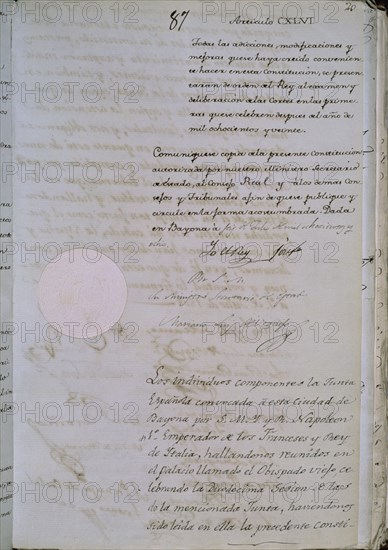 20
87
Artículo CXLVI.
Todas las adiciones, modificaciones y
mejoras que se haya creido convenien
te hacer en esta Constitucion, se presen
tarán de orden del Rey al examen y
deliberacion de las Cortes en las prime
ras que se celebren despues del año de
mil ochocientos y veinte.
Comuniquese copia de la presente constitucion
autorizada por nuestro Ministro Secretario
de Estado, al Consejo Real y a los demas Con
sejos y Tribunales a fin de que se publique y
circule en la forma acostumbrada. Dada
en Bayona a
ocho.
Yo el Rey Josef
Por S. M.
Mariano Luis de
Los individuos componentes la Junta
Española convocada a esta Ciudad de
Bayona por S. M. Y. y R. Napoleon
1º Emperador de los Franceses y Rey
de Italia, hallandonos reunidos en
el palacio llamado el Obispado viejo ce
lebrando la Duodecima Sesion de las
de la mencionada Junta, haviendonos
sido leida en ella la precedente consti-
PHOTO12